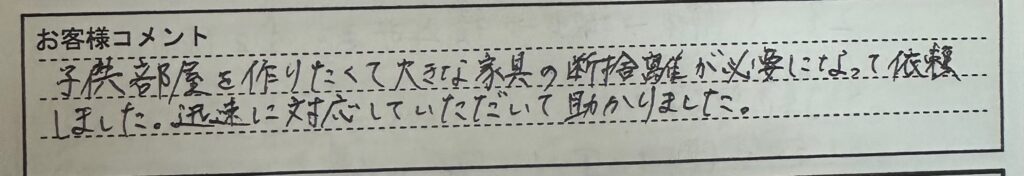 お客様コメント
子供部屋を作りたくて大きな家具の断捨離が必要になって依頼
しました。迅速に対応していただいて助かりました。